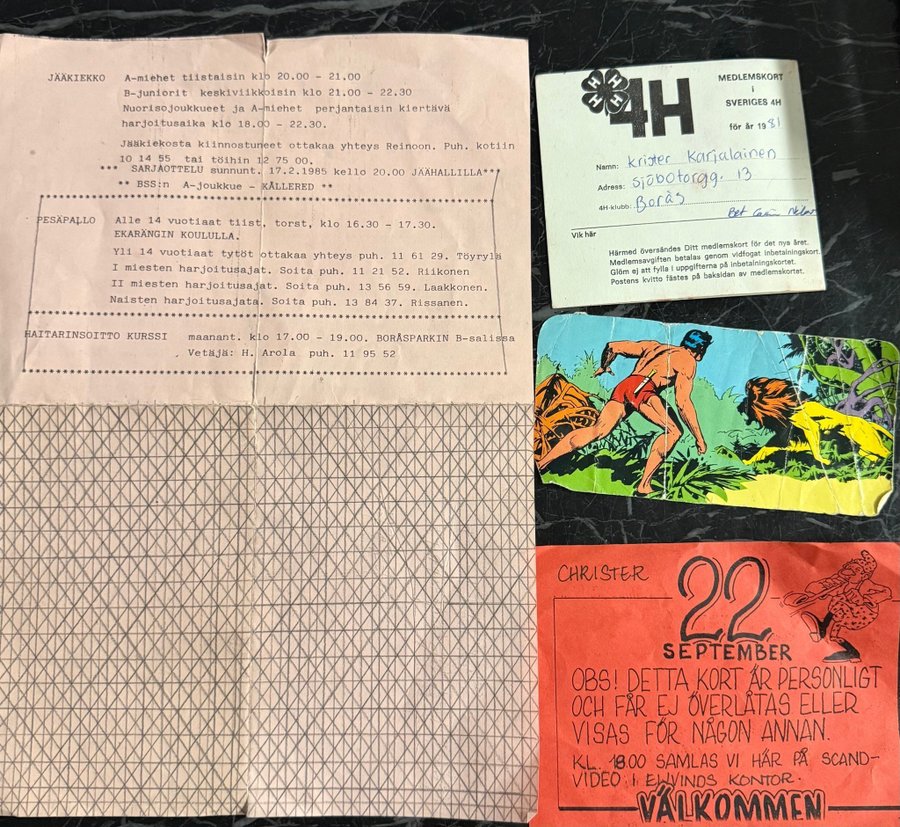 JÄÄKIEKKO A-miehet tiistaisin klo 20.00 - 21.00
B-juniorit keskiviikkoisin klo 21.00 - 22.30
Nuorisojoukkueet ja A-miehet perjantaisin kiertävä
harjoitusaika klo 18.00 - 22.30.
Jääkiekosta kiinnostuneet ottakaa yhteys Reinoon. Puh. kotiin
10 14 55 tai töihin 12 75 00.
*** SARJAOTTELU sunnunt. 17.2.1985 kello 20.00 JÄÄHALLILLA***
** BSS:n A-joukkue - KÅLLERED **
PESÄPALLO Alle 14 vuotiaat tiist, torst, klo 16.30 - 17.30.
EKARÄNGIN KOULULLA.
Yli 14 vuotiaat tytöt ottakaa yhteys puh. 11 61 29. Töyrylä
I miesten harjoitusajat. Soita puh. 11 21 52. Riikonen
II miesten harjoitusajat. Soita puh. 13 56 59. Laakkonen.
Naisten harjoitusajata. Soita puh. 13 84 37. Rissanen.
HAITARINSOITTO KURSSI maanant. klo 17.00 - 19.00. BORÅSPARKIN B-salissa
Vetäjä: H. Arola puh. 11 95 52
H H H H
4H
MEDLEMSKORT
i
SVERIGES 4H
för år 1981
Namn: Krister Karjalainen
Adress: Sjöbotorgg. 13
4H-klubb: Borås
Vik här
Härmed översändes Ditt medlemskort för det nya året.
Medlemsavgiften betalas genom vidfogat inbetalningskort.
Glöm ej att fylla i uppgifterna på inbetalningskortet.
Postens kvitto fästes på baksidan av medlemskortet.
CHRISTER
22
SEPTEMBER
OBS! DETTA KORT ÄR PERSONLIGT
OCH FÅR EJ ÖVERLÅTAS ELLER
VISAS FÖR NÅGON ANNAN.
KL. 18.00 SAMLAS VI HÄR PÅ SCAND-
VIDEO I EWVINDS KONTOR.
VÄLKOMMEN